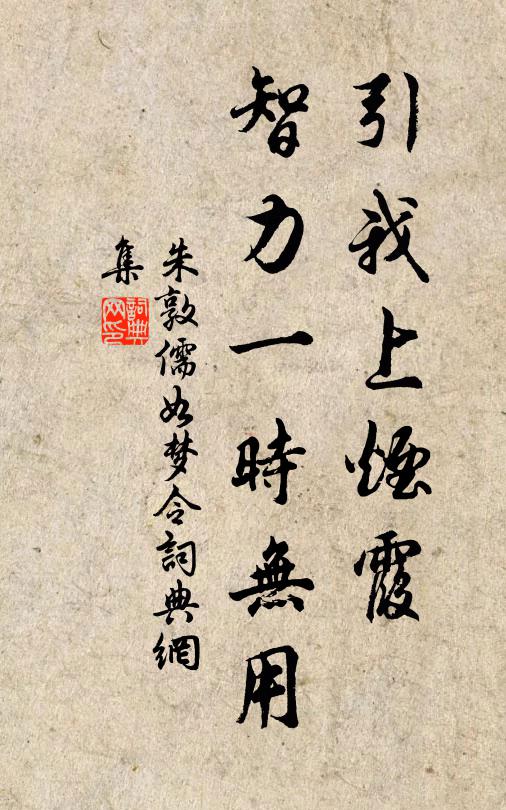 引我上煙霞
智力一時無用
朱敦儒如梦令詞典網
集
詞典
网印